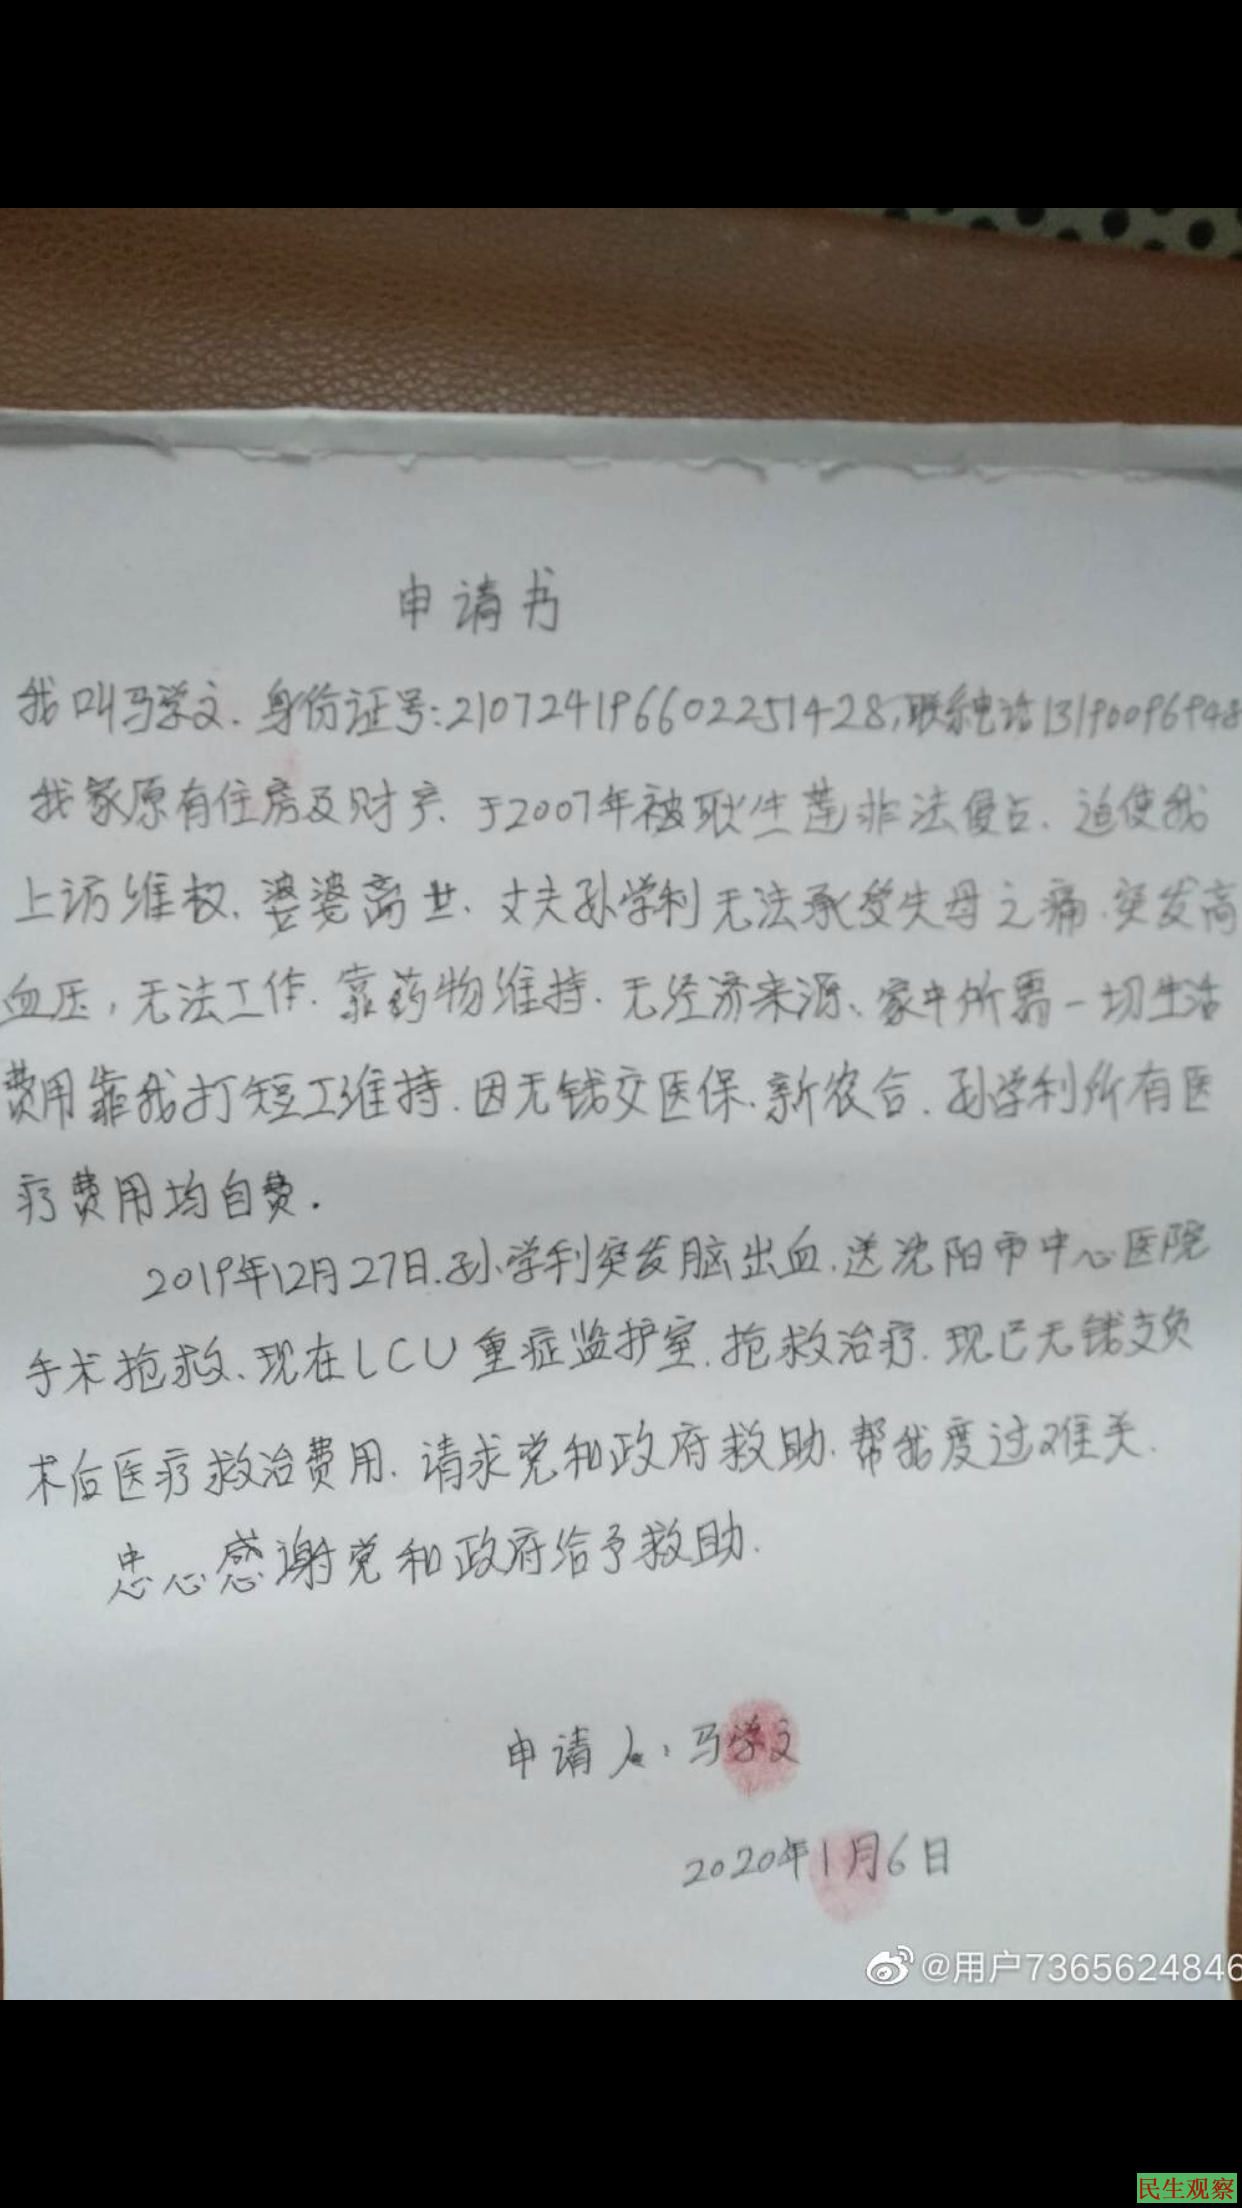 申请书
我叫马学文.身份证号:210724196602251428,联系电话13190096948
我家原有住房及财产、于2007年被耿生莲非法侵占、迫使我
上访维权、婆婆离世、丈夫孙学利无法承受失母之痛.突发高
血压,无法工作.靠药物维持.无经济来源、家中所需一切生活
费用靠我打短工维持.因无钱交医保.新农合.孙学利所有医
疗费用均自费.
2019年12月27日.孙学利突发脑出血.送沈阳市中心医院
手术抢救、现在LCU重症监护室.抢救治疗.现已无钱支负
术后医疗救治费用.请求党和政府救助.帮我度过难关.
忠心感谢党和政府给予救助.
申请人:马学文
2020年1月6日
@用户7365624846
民生观察